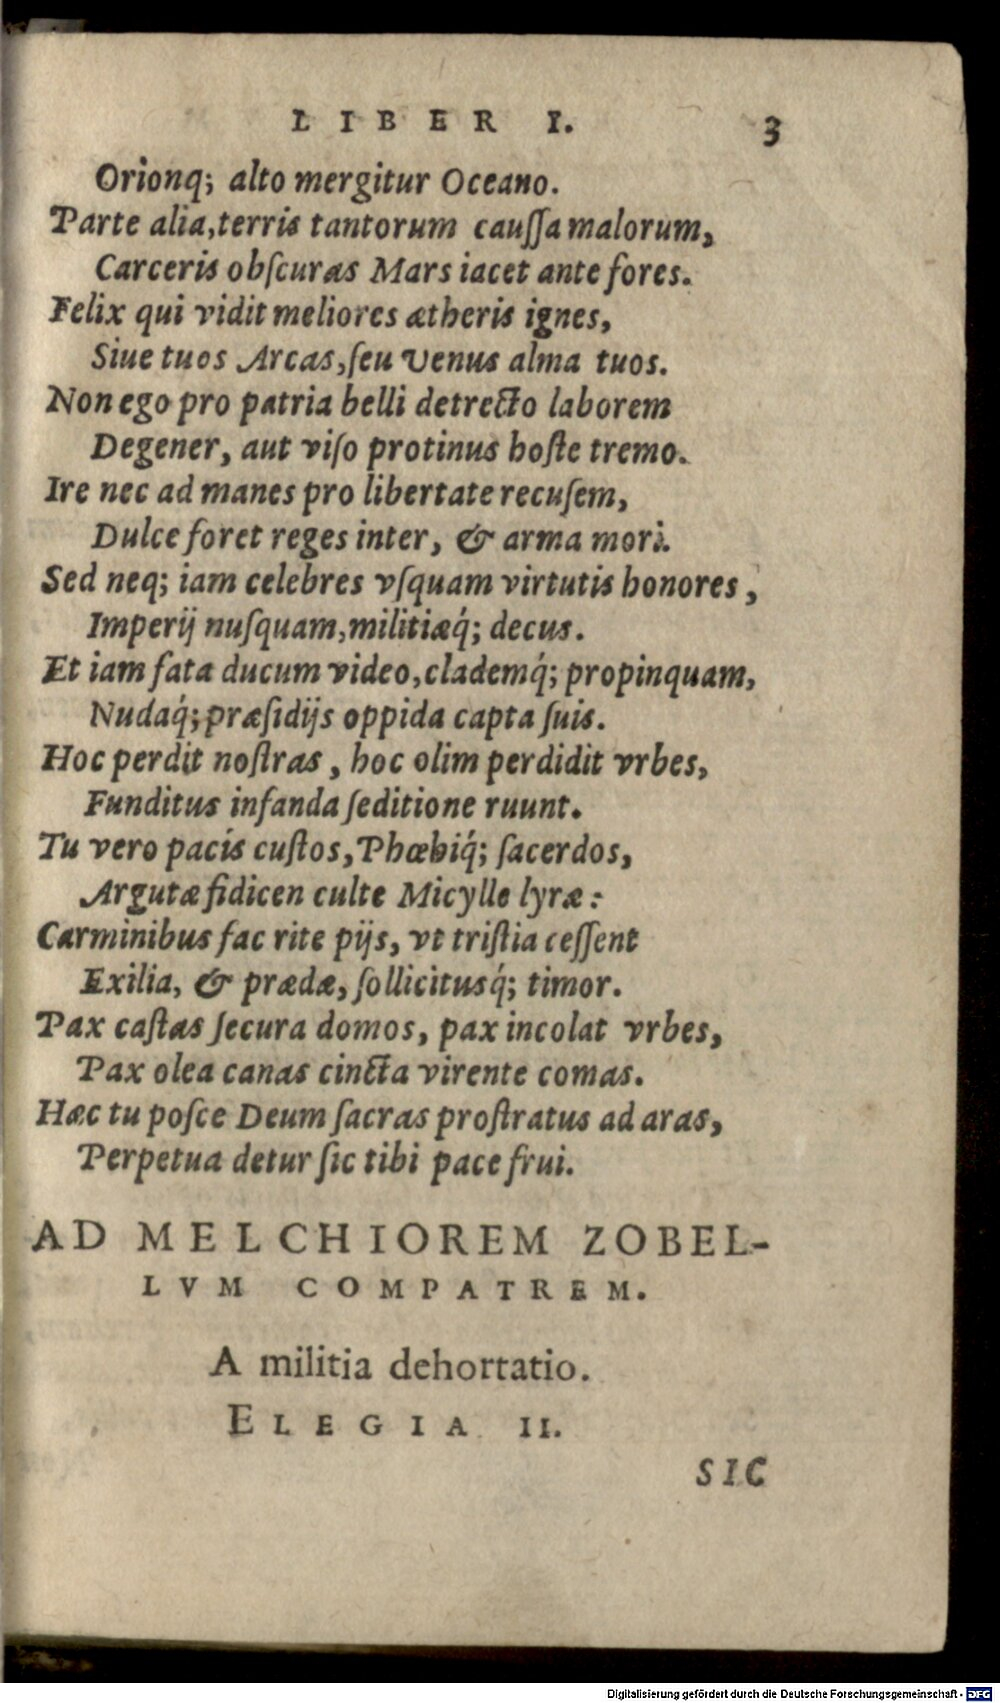 LIBER I. 3
Orionq; alto mergitur Oceano.
Parte alia, terris tantorum cauſſa malorum,
Carceris obſcuras Mars iacet ante fores.
Felix qui vidit meliores ætheris ignes,
Siue tuos Arcas, ſeu Venus alma tuos.
Non ego pro patria belli detrecto laborem
Degener, aut viſo protinus hoſte tremo.
Ire nec ad manes pro libertate recuſem,
Dulce foret reges inter, & arma mori.
Sed neq; iam celebres vſquam virtutis honores,
Imperij nuſquam, militiæq́; decus.
Et iam fata ducum video, clademq́; propinquam,
Nudaq́; præſidijs oppida capta ſuis.
Hoc perdit noſtras, hoc olim perdidit vrbes,
Funditus infanda ſeditione ruunt.
Tu vero pacis cuſtos, Phœbiq́; ſacerdos,
Argutæ fidicen culte Micylle lyræ:
Carminibus fac rite pijs, vt triſtia ceſſent
Exilia, & prædæ, ſollicitusq́; timor.
Pax caſtas ſecura domos, pax incolat vrbes,
Pax olea canas cincta virente comas.
Hæc tu poſce Deum ſacras proſtratus ad aras,
Perpetua detur ſic tibi pace frui.
AD MELCHIOREM ZOBEL-
LVM COMPATREM.
A militia dehortatio.
ELEGIA II.
SIC
Digitalisierung gefördert durch die Deutsche Forschungsgemeinschaft - DFG